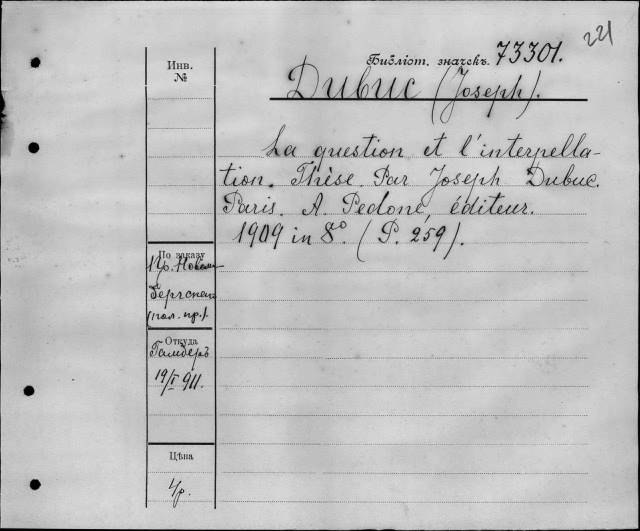 221
Библіот. значекъ. 73301.
Dubuc (Joseph).
La question et l'interpella-
tion. Thèse. Par Joseph Dubuc.
Paris. A. Pedone, éditeur.
1909 in 8º. (P. 259).
Инв.
№
По заказу
Пр.
(пол. пр.).
Откуда
19/I 911.
Цѣна